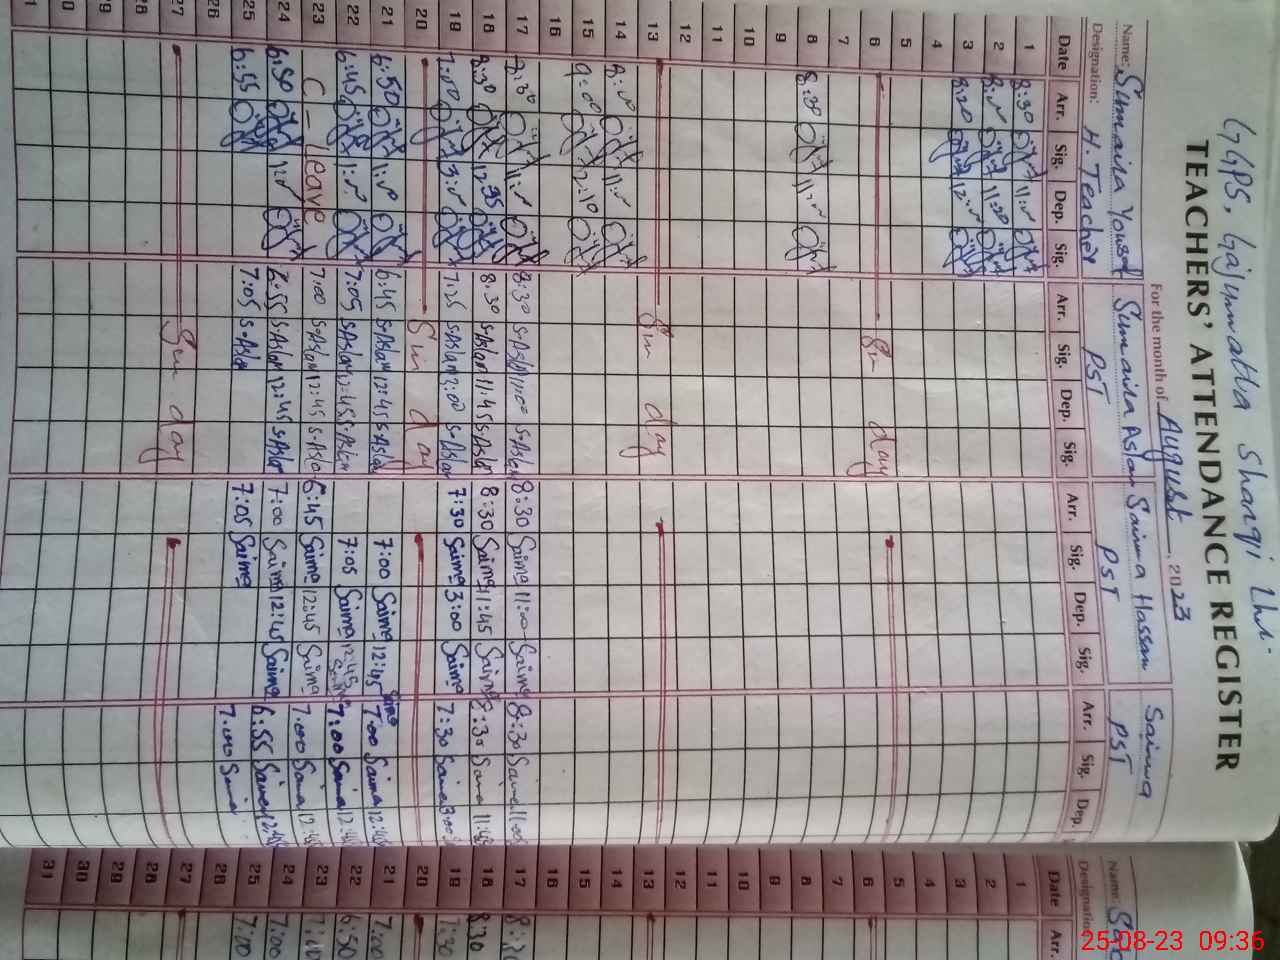 GGPS, Gajjumatta Sharqi Lhr.
TEACHERS' ATTENDANCE REGISTER
For the month of August, 2023
Name: Sumaira Yousaf Sumaira Aslam Saima Hassan Saima
Designation: H. Teacher PST PST PST
Date Arr. Sig. Dep. Sig. Arr. Sig. Dep. Sig. Arr. Sig. Dep. Sig. Arr. Sig. Dep.
1 8:30 11:00
2 8:00 11:00
3 8:20 12:00
4
5
6 Sun day
7
8 8:30 11:00
9
10
11
12
13 Sun day
14 8:00 11:00
15 9:00 12:10
16
17 8:30 11:00 8:30 S.Aslam 11:00 S.Aslam 8:30 Saima 11:00 Saima 8:30 Saima 11:00
18 8:30 12:35 8:30 S.Aslam 11:45 S.Aslam 8:30 Saima 11:45 Saima 8:30 Saima 11:45
19 7:00 3:00 7:25 S.Aslam 3:00 S.Aslam 7:30 Saima 3:00 Saima 7:30 Saima 3:00
20 Sun day
21 6:50 11:00 6:45 S.Aslam 12:45 S.Aslam 7:00 Saima 12:45 Saima 7:00 Saima 12:45
22 6:45 11:00 7:05 S.Aslam 12:45 S.Aslam 7:05 Saima 12:45 Saima 7:00 Saima 12:45
23 C - leave 7:00 S.Aslam 12:45 S.Aslam 6:45 Saima 12:45 Saima 7:00 Saima 12:45
24 6:50 12:00 6:55 S.Aslam 12:45 S.Aslam 7:00 Saima 12:45 Saima 6:55 Saima 12:45
25 6:55 7:05 S.Aslam 7:05 Saima 7:00 Saima
26
27 Sun day
28
29
30
31
Name:
Designation
Date Arr.
1
2
3
4
5
6
7
8
9
10
11
12
13
14
15
16
17 8:30
18 8:30
19 7:30
20
21 7:00
22 6:50
23
24 7:00
25 7:00
26
27
28
29
30
31
25-08-23 09:36